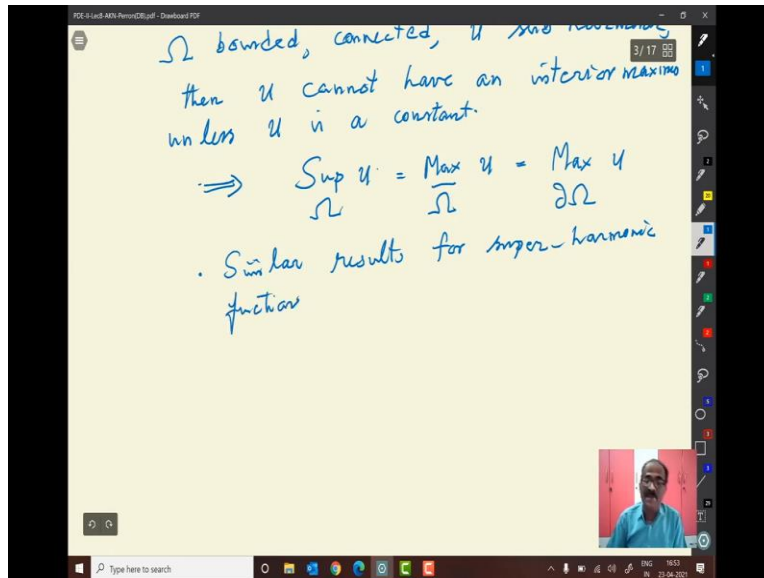 PDE-II-Lec8-AKN-Perron(DB).pdf - Drawboard PDF
3 / 17
Ω bounded, connected, u sub
then u cannot have an interior maximum
unless u is a constant.
⟹ Sup u = Max u = Max u
Ω Ω̅ ∂Ω
. Similar results for super-harmonic
function
Type here to search
ENG 16:53
IN 23-04-2021